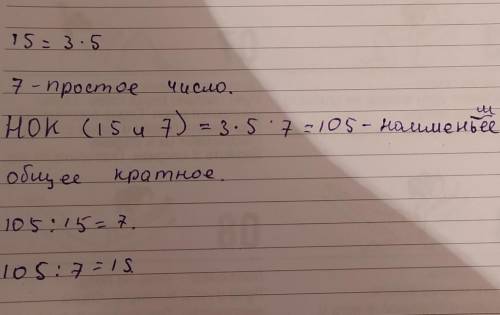 15 = 3 · 5
7 - простое число.
НОК (15 и 7) = 3 · 5 · 7 = 105 - наименьшее
общее кратное.
105 : 15 = 7.
105 : 7 = 15.